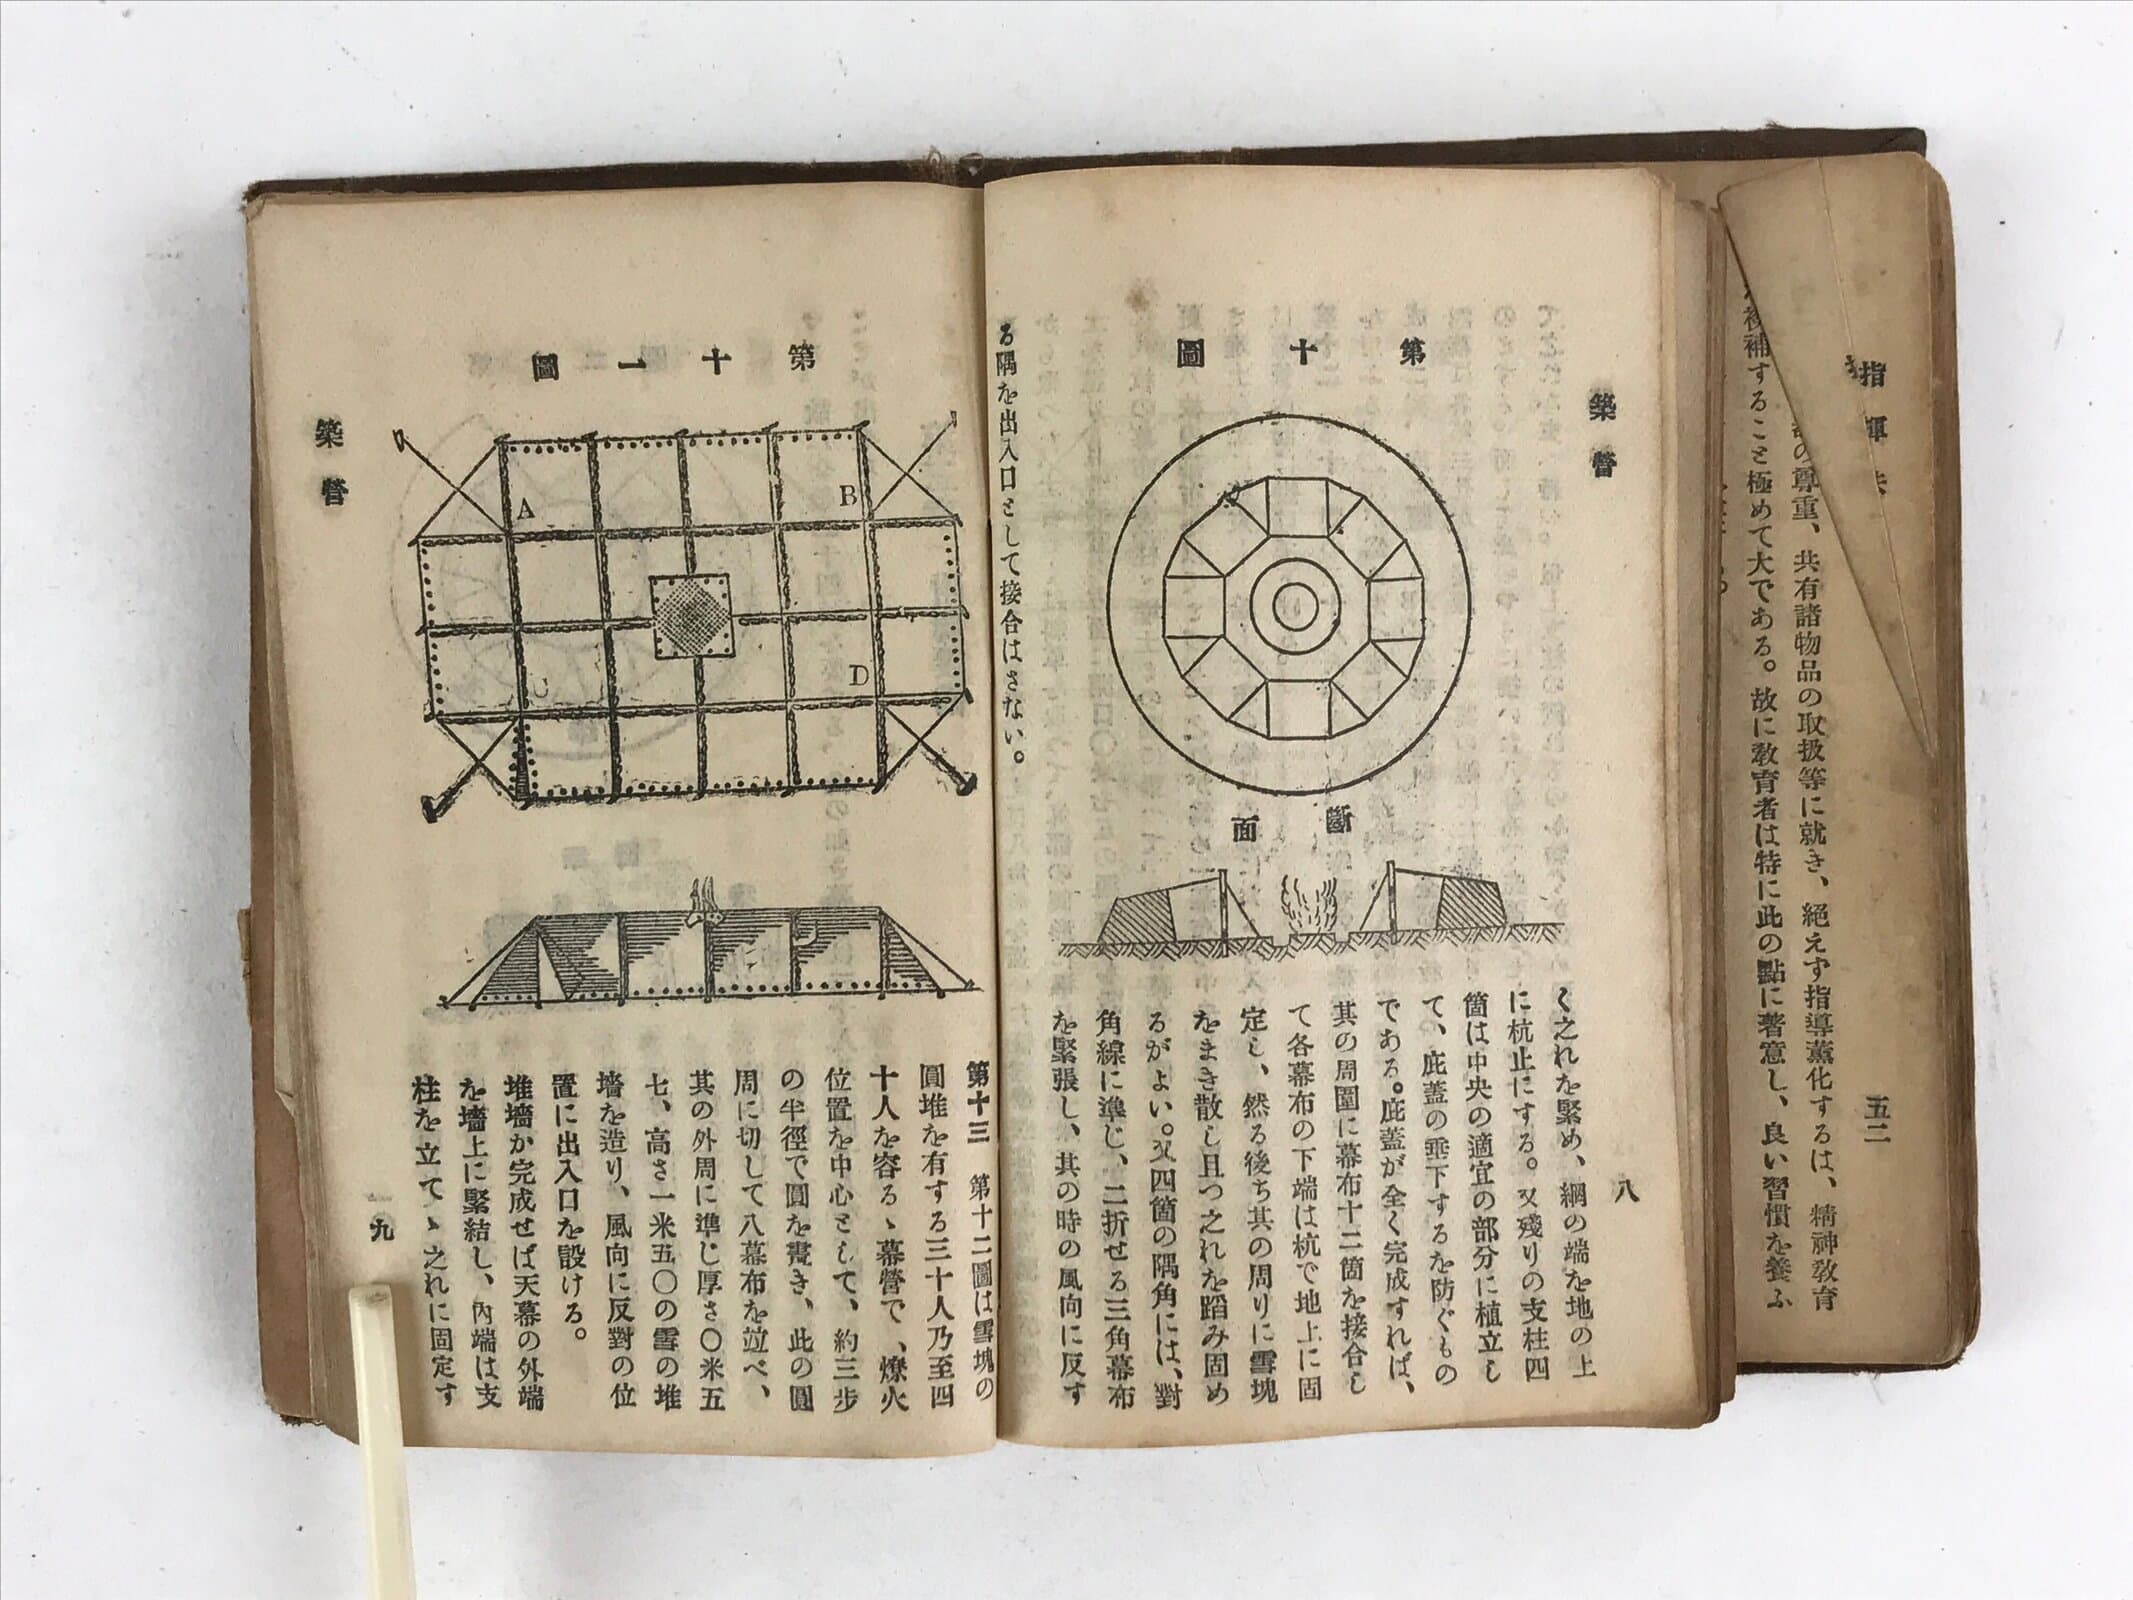 指揮法
五二
の尊重、共有諸物品の取扱等に就き、絕えず指導薰化するは、精神敎育
補すること極めて大である。故に敎育者は特に此の點に著意し、良い習慣を養ふ
築營
八
第十圖
斷面
く之れを緊め、綱の端を地の上
に杭止にする。又殘りの支柱四
箇は中央の適宜の部分に植立し
て、庇蓋の垂下するを防ぐもの
である。庇蓋が全く完成すれば、
其の周圍に幕布十二箇を接合し
て各幕布の下端は杭で地上に固
定し、然る後ち其の周りに雪塊
をまき散し且つ之れを蹈み固め
るがよい。又四箇の隅角には、對
角線に準じ、二折せる三角幕布
を緊張し、其の時の風向に反す
る隅を出入口として接合はさない。
第十一圖
A
B
D
第十三 第十二圖は雪塊の
圓堆を有する三十人乃至四
十人を容るゝ幕營で、燎火
位置を中心として、約三步
の半徑で圓を畫き、此の圓
周に切して八幕布を竝べ、
其の外周に準じ厚さ〇米五
七、高さ一米五〇の雪の堆
墻を造り、風向に反對の位
置に出入口を設ける。
堆墻か完成せば天幕の外端
を墻上に緊結し、內端は支
柱を立てゝ之れに固定す
築營
九